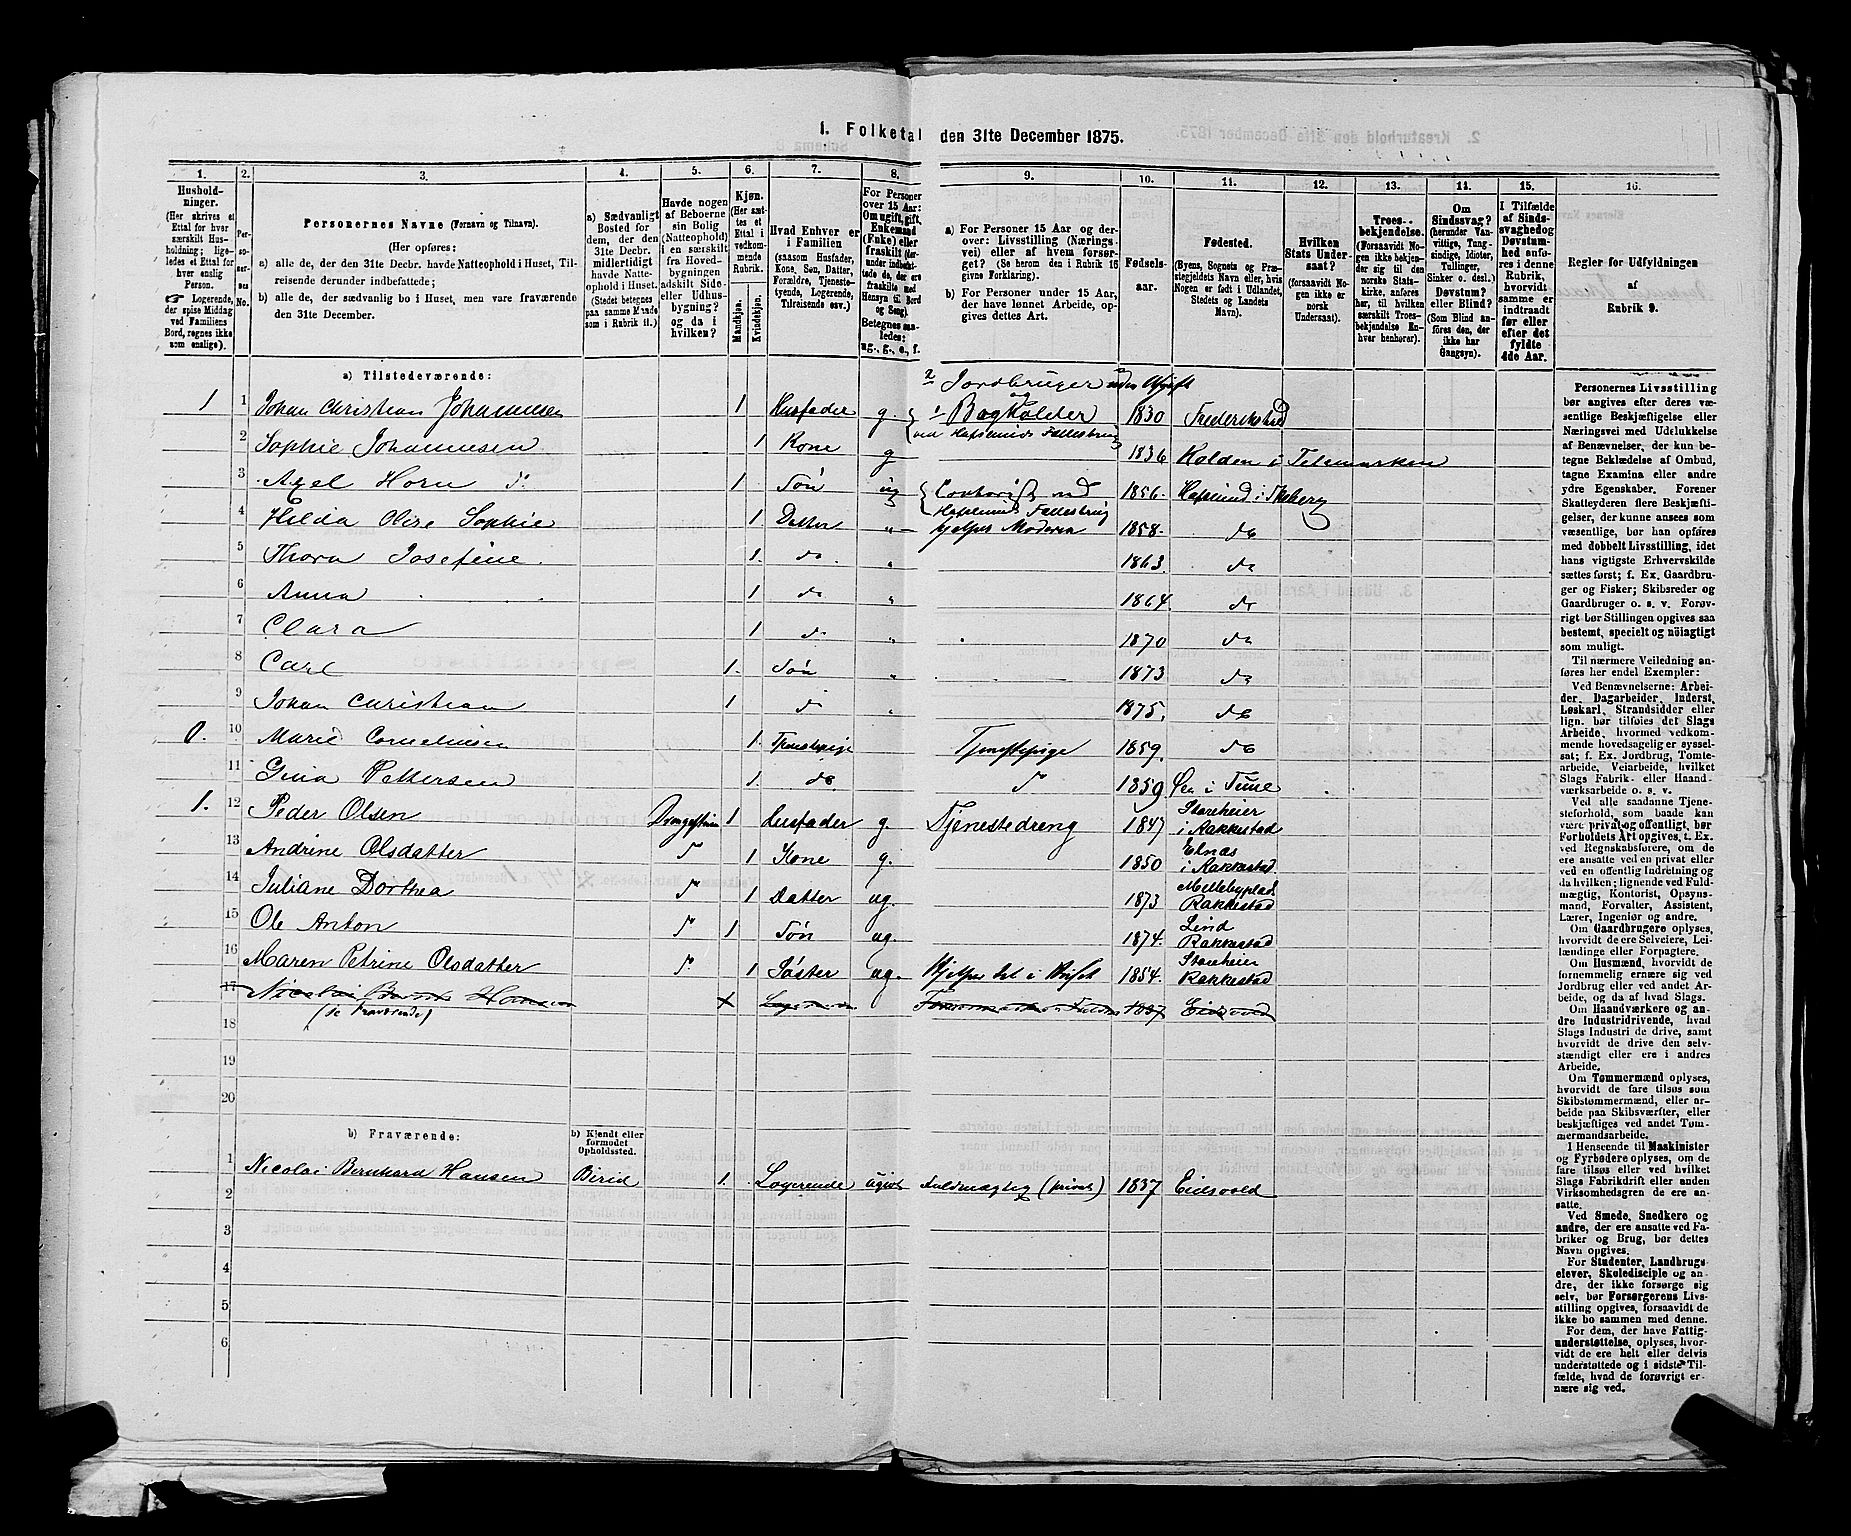 1. Folketal den 31te December 1875.
1. 2. 3. 4. 5. 6. 7. 8. 9. 10. 11. 12. 13. 14. 15. 16.
Husholdninger. (Her skrives et Ettal for hver særskilt Husholdning; ligeledes et Ettal for hver enslig Person. ☞ Logerende, der spise Middag ved Familiens Bord, regnes ikke som enslige).
Personernes No.
Personernes Navne (Fornavn og Tilnavn).
(Her opføres:
a) alle de, der den 31te Decbr. havde Natteophold i Huset, Tilreisende derunder indbefattede;
b) alle de, der sædvanlig bo i Huset, men vare fraværende den 31te December.
a) Sædvanligt Bosted for dem, der den 31te Decbr. midlertidigt havde Natteophold i Huset. (Stedet betegnes paa samme Maade som i Rubrik 11.)
Havde nogen af Beboerne sin Bolig (Natteophold) i en særskilt fra Hovedbygningen adskilt Side- eller Udhusbygning? og da i hvilken?
Kjøn. (Her sættes et Ettal i vedkommende Rubrik.
Mandkjøn. Kvindekjøn.
Hvad Enhver er i Familien (saasom Husfader, Kone, Søn, Datter, Forældre, Tjenestetyende, Logerende, Tilreisende osv.)
For Personer over 15 Aar: Om ugift, gift, Enkemand (Enke) eller fraskilt
Betegnes saaledes: ug., g., e., f.
a) For Personer 15 Aar og derover: Livsstilling (Næringsvei) eller af hvem forsørget? (Se herom den i Rubrik 16 givne Forklaring).
b) For Personer under 15 Aar, der have lønnet Arbeide, opgives dettes Art.
Fødselsaar.
Fødested. (Byens, Sognets og Præstegjeldets Navn eller, hvis Nogen er født i Udlandet, Stedets og Landets Navn).
Hvilken Stats Undersaat? (forsaavidt Nogen ikke er norsk Undersaat).
Troesbekjendelse. (Forsaavidt Nogen ikke bekjender sig til den norske Statskirke, anføres her, til hvilken særskilt Troesbekjendelse Enhver henhører).
Om Sindssvag? (herunder Vanvittige, Tungsindige, Idioter, Tullinger, Sinker o. desl.). Døvstum? eller Blind? (Som Blind anføres den, der ikke har Gangsyn).
I Tilfælde af Sindssvaghed og Døvstumhed anføres i denne Rubrik, hvorvidt samme er indtraadt før eller efter det fyldte 4de Aar.
Regler for Udfyldningen af Rubrik 9.
a) Tilstedeværende:
2 Jordbruger uden Afgift
1 1 Johan Christian Johannesen 1 Husfader g. 1 Bogholder ved Hafslunds Fællesbrug 1830 Frederikstad
2 Sophie Johannesen 1 Kone g 1836 Kolden i Telemarken
3 Axel Horn d. 1 Søn ug Contorist ved Hafslunds Fællesbrug 1856. Hafslund i Skeberg
4 Hilda Olise Sophie 1 Datter " hjelper Moderen 1858. do
5 Thora Josefine. 1. do. " 1863. do
6 Anna 1 do " 1864 do
7 Clara 1 do " 1870 do
8 Carl 1. Søn " 1873 do
9 Johan Christian 1 do 1875. do
0. 10 Marie Corneliusen 1. Tjenestepige Tjenestepige 1859. do
11 Gina Pettersen 1. do d 1859 i Tune
1. 12 Peder Olsen 1 Husfader g. Tjenestedreng 1847 Storeheier i Rakkestad
13 Andrine Olsdatter d 1 Kone g. 1850 Elnæs i Rakkestad
14 Juliane Dorthea d 1 Datter ug. 1873 Rakkestad
15 Ole Anton d 1 Søn ug. 1874. Lind Rakkestad
16 Maren Petrine Olsdatter d. 1 Søster ug. Hjelper til i Huset 1854. Storeheier Rakkestad
17 Nicolai Hansen (se Fraværende) Logerende 1837 Eidsvold
18
19
20
b) Fraværende: b) Kjendt eller formodet Opholdssted.
1 Nicolai Bernhard Hansen Birid 1. Logerende ugivt Fuldmægtig (privat) 1837 Eidsvold
2
3
4
5
6
Personernes Livsstilling bør angives efter deres væsentlige Beskjæftigelse eller Næringsvei med Udelukkelse af Benævnelser, der kun betegne Beklædelse af Ombud, tagne Examina eller andre ydre Egenskaber. Forener Skatteyderen flere Beskjæftigelser, der kunne ansees som væsentlige, bør han opføres med dobbelt Livsstilling, idet hans vigtigste Erhvervskilde sættes først; f. Ex. Gaardbruger og Fisker; Skibsreder og Gaardbruger o. s. v. Forøvrigt bør Stillingen opgives saa bestemt, specielt og nøiagtigt som muligt.
Til nærmere Veiledning anføres her endel Exempler:
Ved Benævnelserne: Arbeider, Dagarbeider, Inderst, Løskarl, Strandsidder eller lign. bør tilføies det Slags Arbeide, hvormed vedkommende hovedsagelig er sysselsat; f. Ex. Jordbrug, Tomtearbeide, Veiarbeide, hvilket Slags Fabrik- eller Haandværksarbeide o. s. v.
Ved alle saadanne Tjenesteforhold, som baade kan være privat og offentligt, bør Forholdets Art opgives, t. Ex. Ved Regnskabsførere, om de ere ansatte ved en privat eller ved en offentlig Indretning og da hvilken; lignende ved Fuldmægtig, Kontorist, Opsynsmand, Forvalter, Assistent, Lærer, Ingeniør og andre.
Om Gaardbrugere oplyses, hvorvidt de ere Selveiere, Leilændinge eller Forpagtere.
Om Husmænd, hvorvidt de fornemmelig ernære sig ved Jordbrug eller ved andet Arbeide, og da af hvad Slags.
Om Haandværkere og andre Industridrivende, hvad Slags Industri de drive, samt hvorvidt de drive den selvstændigt eller ere i andres Arbeide.
Om Tømmermænd oplyses, hvorvidt de fare tilsøs som Skibstømmermænd, eller arbeide paa Skibsværfter, eller beskjæftiges ved andet Tømmermandsarbeide.
I Henseende til Maskinister og Fyrbødere oplyses, om de fare tilsøs eller ved hvilket Slags Fabrikdrift eller anden Virksomhedsgren de ere ansatte.
Ved Smede, Snedkere og andre, der ere ansatte ved Fabriker og Brug, bør dettes Navn opgives.
For Studenter, Landbrugselever, Skoledisciple og andre, der ikke forsørge sig selv, bør Forsørgerens Livsstilling opgives, forsaavidt de ikke bo sammen med denne.
For dem, der have Fattigunderstøttelse, oplyses, hvorvidt de ere helt eller delvis understøttede og i sidste Tilfælde, hvad de forøvrigt ernære sig ved.